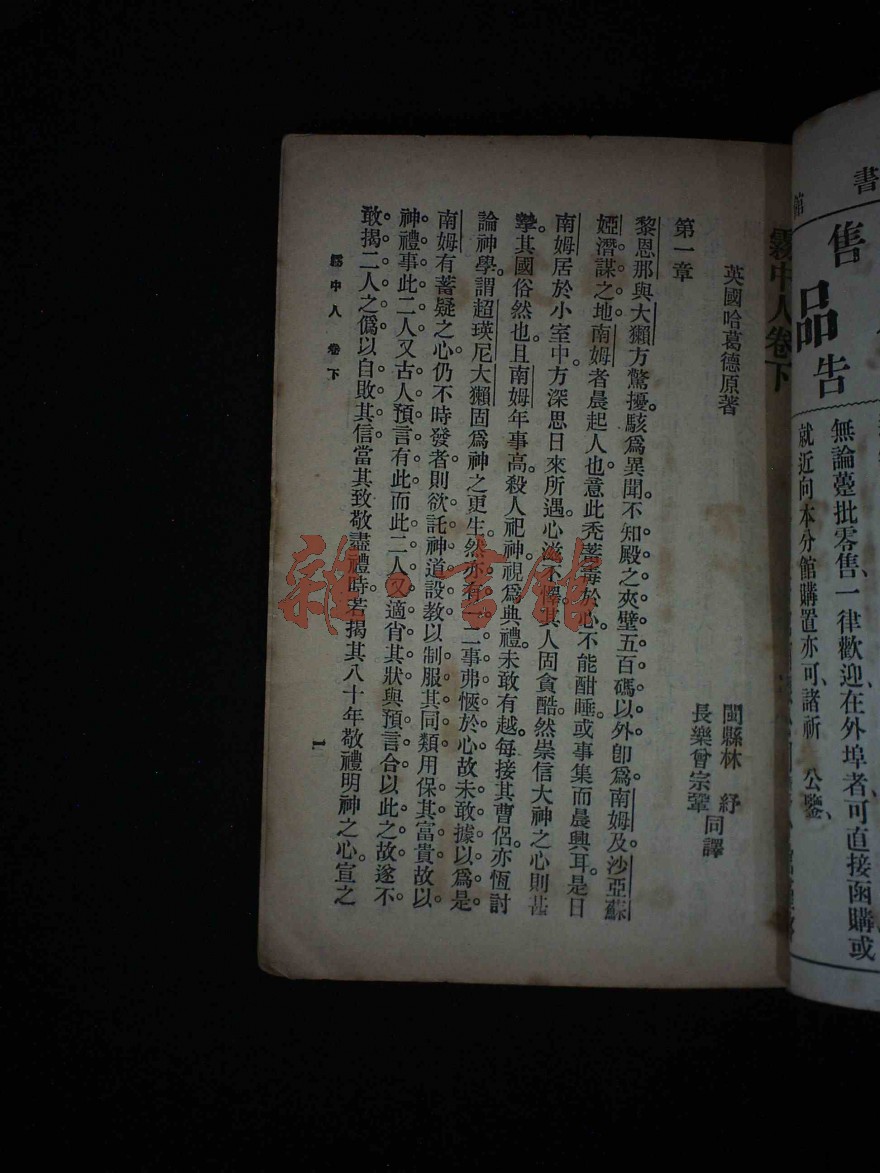 書
館
售
品
告
無論躉批零售、一律歡迎在外埠者可直接函購或
就近向本分館購置亦可、諸祈 公鑒、
霧中人卷下
英國哈葛德原著
閩縣林 紓
長樂曾宗鞏
同譯
第一章
黎恩那與大獺方驚擾駭為異聞。不知殿之夾壁五百碼以外卽為南姆及沙亞蘇
婭潛謀之地南姆者晨起人也意此禿蓄毒於心不能酣睡或事集而晨興耳是日
南姆居於小室中方深思日來所遇心滋不懌其人固貪酷然崇信大神之心則甚
摯其國俗然也且南姆年事高。殺人祀神視為典禮未敢有越每接其曹侶亦恆討
論神學。謂超瑛尼大獺固為神之更生。然亦有一二事弗愜於心故未敢據以為是
南姆有蓄疑之心。仍不時發者則欲託神道設教以制服其同類用保其富貴故以
神禮事此二人又古人預言有此而此二人又適肖其狀與預言合以此之故遂不
敢揭二人之僞以自敗其信當其致敬盡禮時若揭其八十年敬禮明神之心。宣之
霧中人 卷下
1
雜·書館